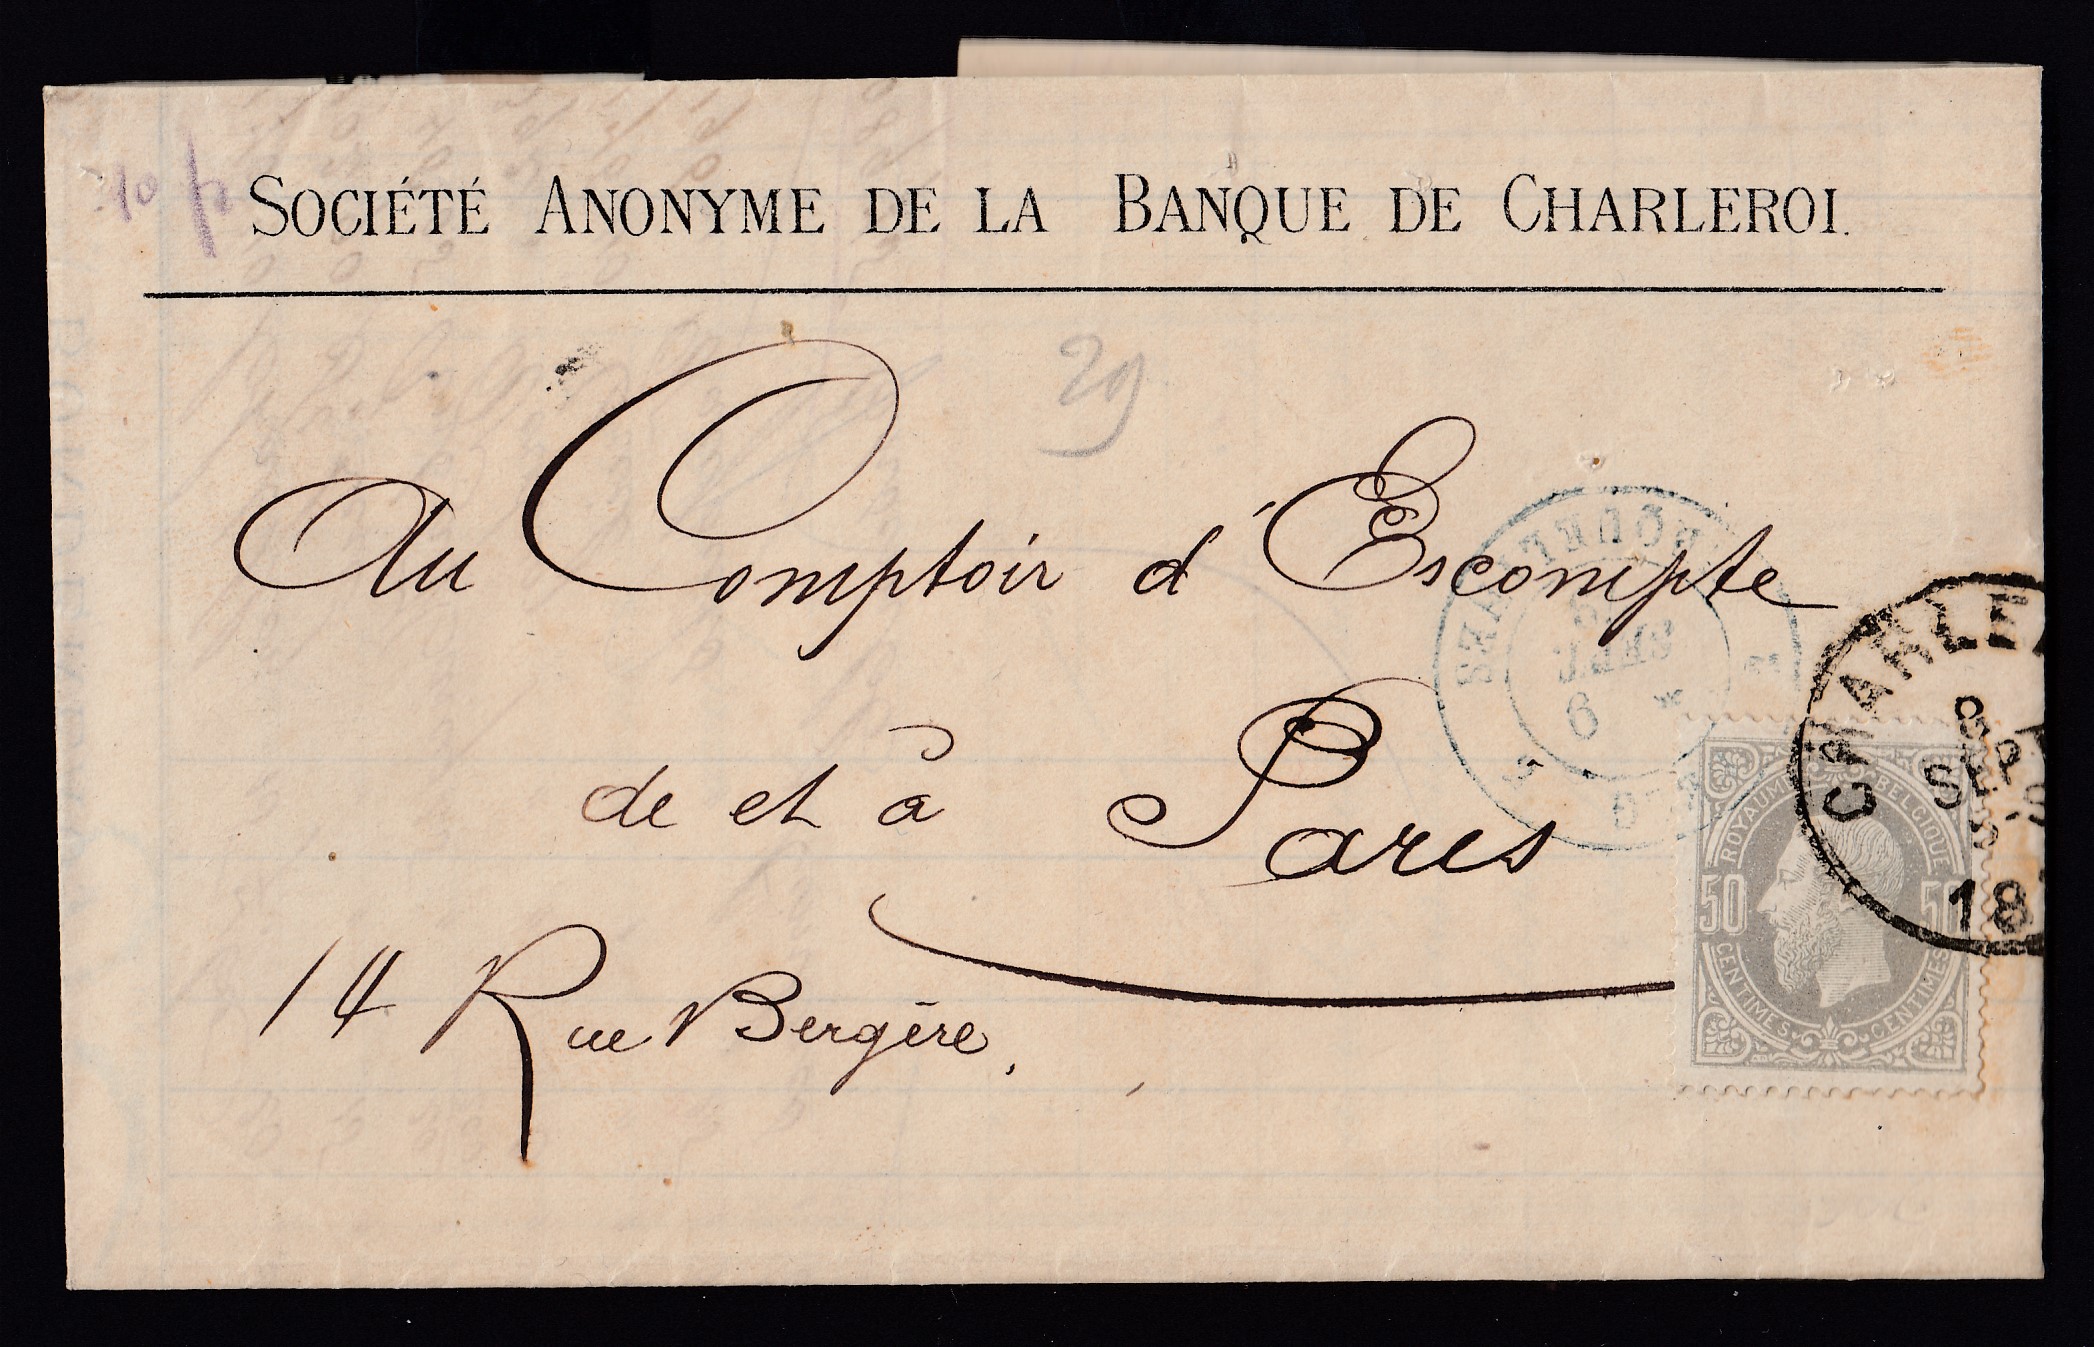 SOCIÉTÉ ANONYME DE LA BANQUE DE CHARLEROI.
29
Au Comptoir d'Escompte
de et à Paris
14 Rue Bergère.
ROYAUME BELGIQUE
50 50
CENTIMES CENTIMES
CHARLE
SEPT
18
6